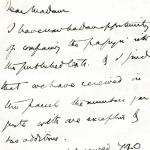 Dear Madam
I have now had an opportunity
of comparing the papyri with
the published texts. & I find
that we have received in
the parcel the numbers you
with one exception &
two additions.
received